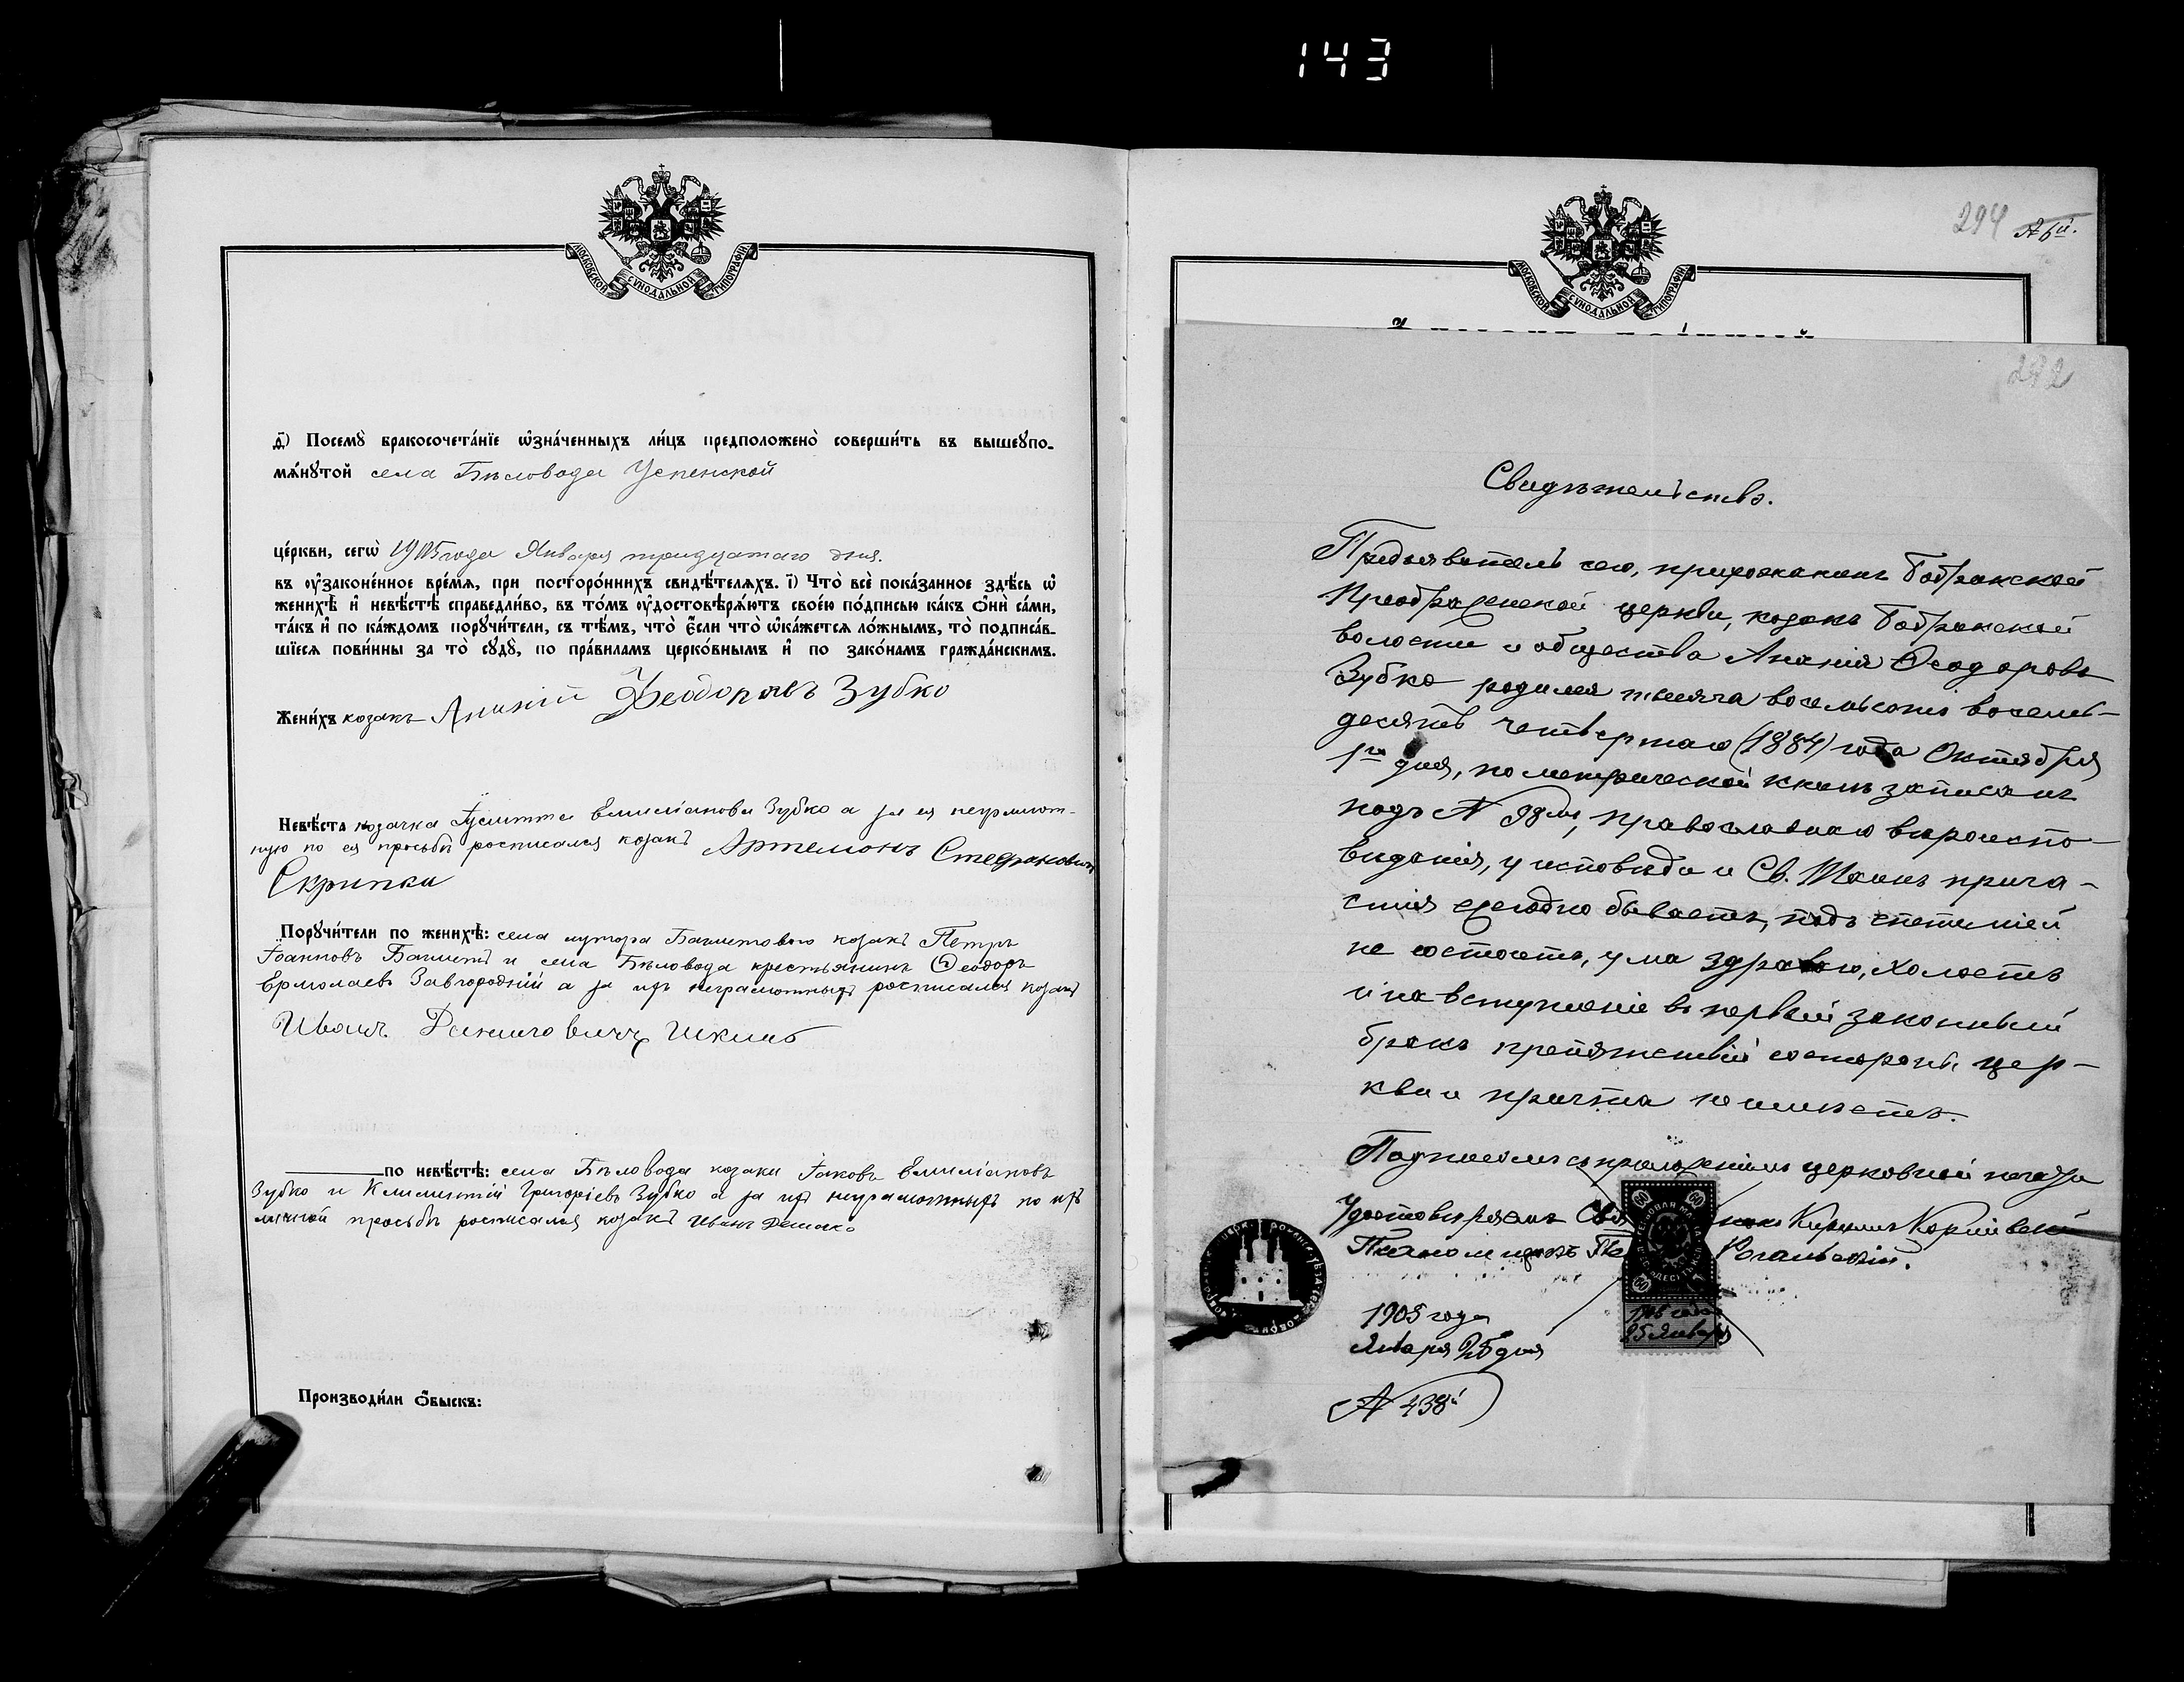 143
МОСКОВСКОЙ СѴНОДАЛЬНОЙ ТИПОГРАФІИ
д҃і) Посемꙋ̀ бракосочета́нїе ѡ҆зна́ченныхъ ли́цъ предположено̀ соверши́ть въ вышеꙋпо-
мѧ́нꙋтой села Бѣловода Успенской
це́ркви, сегѡ̀ 1905 года Января тридцатаго дня.
въ ᲂу҆законе́нное вре́мѧ, при посторо́ннихъ свидѣ́телѧхъ. і҃) Что̀ всѐ пока́занное здѣ́сь ѡ҆
женихѣ̀ и҆ невѣ́стѣ справедли́во, въ то́мъ ᲂу҆достовѣрѧ́ютъ свое́ю по́дписью ка́къ ѻ҆нѝ са́ми,
та́къ и҆ по ка́ждомъ порꙋчи́тели, съ тѣ́мъ, что̀ є҆́сли что̀ ѡ҆ка́жетсѧ ло́жнымъ, то̀ подписа́в-
шїесѧ пови́нны за то̀ сꙋдꙋ̀, по пра́виламъ церко́внымъ и҆ по зако́намъ гражда́нскимъ.
Жени́хъ козакъ Ананій Ѳеодоровъ Зубко
Невѣ́ста козачка Емиліанова Зубко а за ея неграмот-
ную по ея просьбѣ росписался козакъ Артемонъ Стефановичъ
Скрипка
Порꙋчи́тели по женихѣ̀: села хутора козакъ Петръ
Іоанновъ и села Бѣловода крестьянинъ Ѳеодоръ
Ермолаевъ Завгородній а за ихъ неграмотныхъ росписался козакъ
Иванъ
по невѣ́стѣ: села Бѣловода козаки Іаковъ Емиліановъ
Зубко и Климентій Григоріевъ Зубко а за ихъ неграмотныхъ по ихъ
личной просьбѣ росписался козакъ Иванъ
Производи́ли ѻ҆́быскъ:
294
МОСКОВСКОЙ СѴНОДАЛЬНОЙ ТИПОГРАФІИ
292
Свидѣтельство.
Предъявитель сего, прихожанинъ Бобрикской
Преображенской церкви, козакъ Бобрикской
волости и общества Ананія Ѳеодоровъ
Зубко родился тысяча восемьсотъ восемь-
десятъ четвертаго (1884) года Октября
1го дня, по метрической книгѣ записанъ
подъ № 98мъ, православнаго вѣроиспо-
вѣданія, у исповѣди и Св. Таинъ прича-
стія ежегодно бываетъ, подъ епитиміей
не состоитъ, ума здраваго, холостъ
и на вступленіе въ первый законный
бракъ препятствій со стороны цер-
кви и причта не имѣетъ.
Подписомъ съ приложеніемъ церковной печати
удостовѣряемъ Свя Кириллъ
Псаломщикъ
1905 года
Января 25 дня
№ 438й
60 60
60 60
25 Января